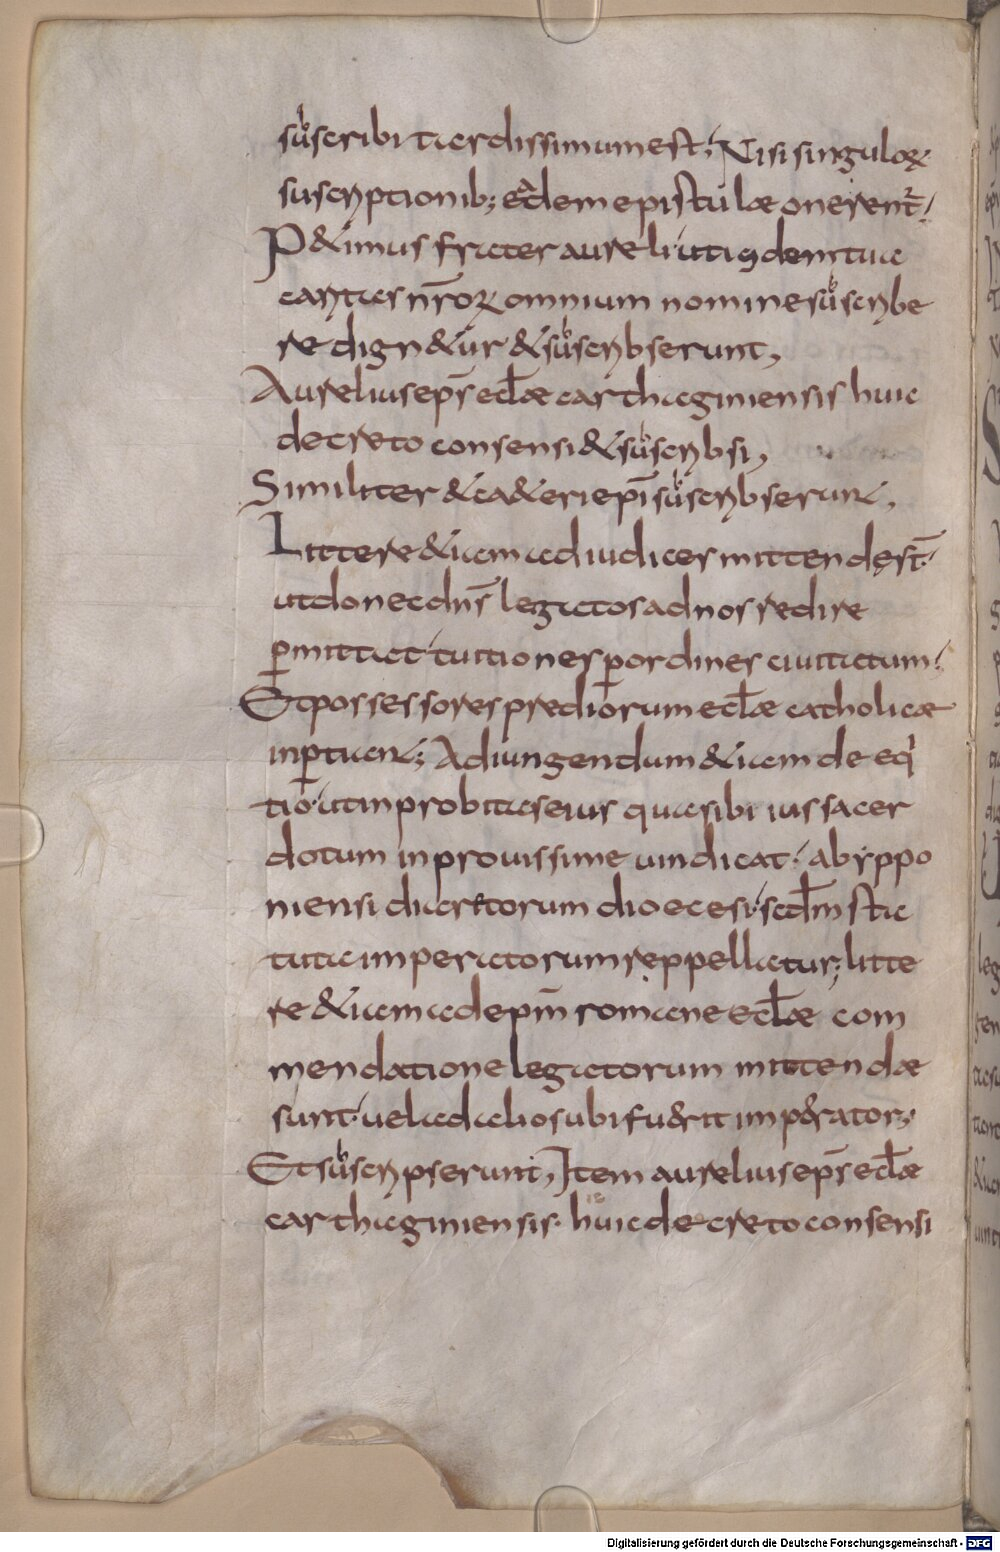 suscribi tardissimum est; Nisi singuloꝝ
suscriptionib; eadem epistulae onerent̄.
P&imus frater aureli ut i디dem tua
caritas nr̄oꝝ omnium nomine suscribe
re dign&ur & suscribserunt,
Aurelius ep̄s eclae carthaginensis huic
decreto consensi & suscribsi,
Similiter & ca&eri epī suscribserunt,
Littere &iam ad iudices mittendę st̄.
ut donec dn̄s legatos ad nos redire
ꝑmittat tuitiones ꝑ ordines ciuitatum.
Et possessores prediorum eclae catholicae
inꝑtiant; Adiungendum &iam de eq
tio. ut inprobitas eius qua sibi ius sacer
dotum inprouissime uindicat. ab yppo
niensi diaeretorum dioecesi. sedm sta
tuta imperatorum reppellatur; litte
re &iam ad epm̄ romane eclae com
mendatione legatorum mittendae
sunt. uel ad alios ubi fu&rit imp&rator;
Et suscripserunt, Item aurelius ep̄s eclae
carthaginensis. huic decreto consensi
Digitalisierung gefördert durch die Deutsche Forschungsgemeinschaft - DFG